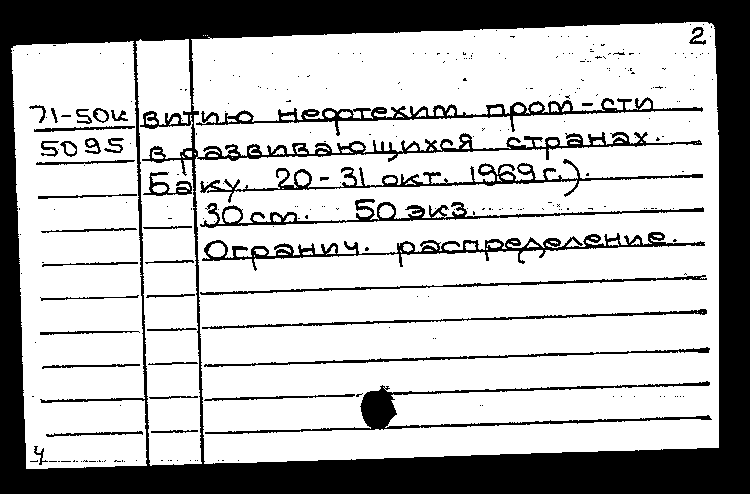 2
71-50к витию нефтехим. пром-сти
5095 в развивающихся странах.
Баку. 20-31 окт. 1969г.).
30 cm. 50 экз.
Огранич. распределение.
ч